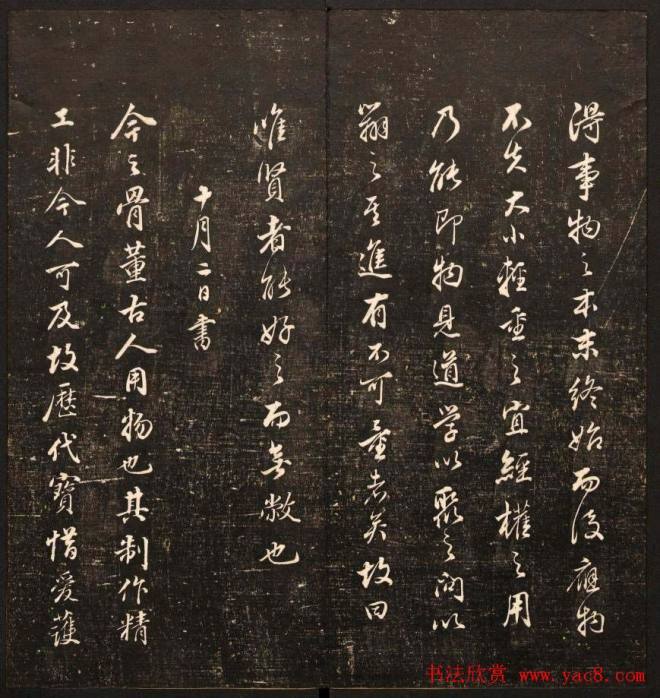 得事物之本末終始而後應物
不失大小輕重之宜經權之用
乃能即物見道学以聚之問以
辯之其進有不可量者矣故曰
唯賢者能好之而無敝也
十月二日書
今之骨董古人用物也其制作精
工非今人可及故歷代寶惜愛護
书法欣赏 www.yac8.com